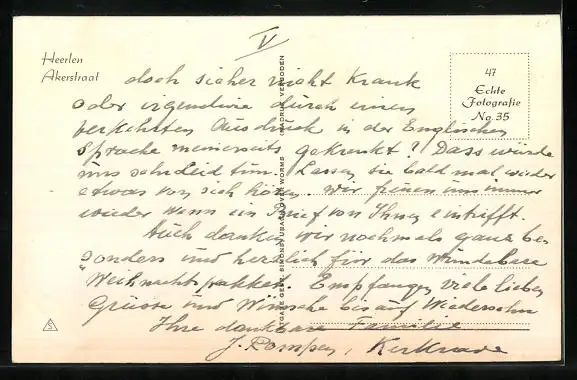 V
Heerlen
Akerstraat
47
Echte
Fotografie
No. 35
doch sicher nicht Krank
oder irgendwie durch einen
verkehrten Ausdruck in der Englischen
Sprache meinerseits gekrenkt? Dass würde
uns sehr leid tun. Lassen Sie bald mal wieder
etwas von sich hören. Wir freuen uns immer
wieder wenn ein Brief von Ihnen eintrifft.
Auch danken wir nochmals ganz be-
sonders und herzlich für das Wunderbare
Weihnachtspakket. Empfangen viele lieben
Grüsse und Wünsche bis auf Wiedersehn
Ihre dankbare Familie
J. Pompen, Kerkrade
NADRUK VERBODEN
S